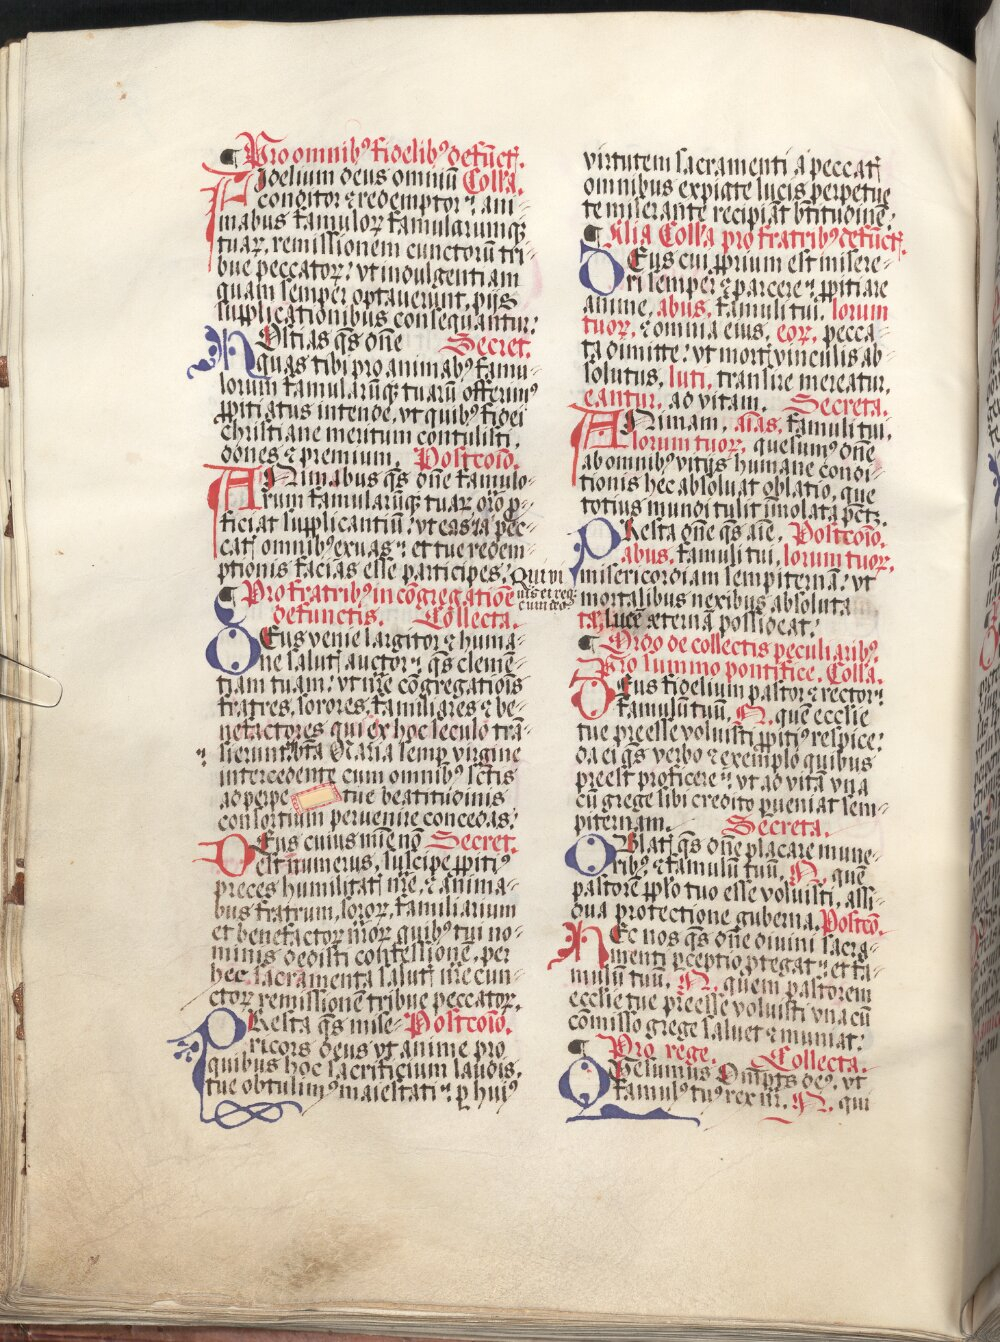 ¶ Pro omnibꝰ fidelibꝰ defūct᷒.
Fidelium deus omniū Coll'a.
conditor ⁊ redemptor: ani-
mabus famuloꝝ famularumqꝫ
tuaꝝ, remissionem cunctorū tri-
bue peccatoꝝ: vt indulgentiam
quam semper optauerunt, pijs
supplicationibus consequantur:
HOstias q̄s dn̄e Secret.
quas tibi pro animabꝰ famu-
lorum famularūqꝫ tuarū offerimꝰ
ꝓpitiatus intende, vt quibꝰ fidei
christiane meritum contulisti,
dones ⁊ premium. Postcoīo.
ANimabus q̄s dn̄e famulo-
rum famularūqꝫ tuaꝝ oꝛo ꝓ-
ficiat supplicantiū: vt eas ⁊ a pec-
cat᷒ omnibꝰ exuas: et tue redem-
ptionis facias esse participes: Qui vi
uis et reg-
¶ Pro fratribꝰ in cōgregatiōe
e cum deo
defunctis. Collecta.
DEus venie largitor ⁊ huma-
ne salut᷒ auctor: q̄s clemē-
tiam tuam: vt nr̄e cōgregatiōis
fratres, sorores, familiares ⁊ be-
nefactores qui ex hoc seculo trā-
sierunt, bt̄a Maria semꝑ virgine
intercedente cum omnibꝰ sct̄is
ad perpe tue beatitudinis
consortium peruenire concedas:
DEus cuius mīe nō Secret.
est numerus, suscipe ꝓpitiꝰ
preces humilitat᷒ nr̄e, ⁊ anima-
bus fratrum, soroꝝ, familiarium
et benefactoꝝ nr̄oꝝ quibꝰ tui no-
minis dedisti confessionē, per
hec sacramenta salut᷒ nr̄e cun-
ctoꝝ remissionē tribue peccatoꝝ.
PResta q̄s mise- Postcoīo.
ricors deus vt anime pro
quibus hoc sacrificium laudis,
tue obtulimꝰ maiestati: ꝑ huiꝰ
virtutem sacramenti a peccat᷒
omnibus expiate lucis perpetue
te miserante recipiāt bt̄itudinē.
¶ Alia Coll'a pro fratribꝰ defūct᷒.
DEus cui ꝓprium est misere-
ri semper ⁊ parcere: ꝓpitiare
anime, abus, famuli tui, lorum
tuoꝝ, ⁊ omnia eius, eoꝝ, pecca-
ta dimitte: vt mort᷒ vinculis ab-
solutus, luti, transire mereatur,
eantur, ad vitam. Secreta.
ANimam, aīas, famuli tui,
lorum tuoꝝ, quesumꝰ dn̄e
ab omnibꝰ vitijs humane condi-
tionis hec absoluat oblatio, que
totius mundi tulit īmolata pct̄a.
PResta dn̄e q̄s aīe, Postcoīo.
abus, famuli tui, lorum tuoꝝ,
misericordiam sempiternā: vt
mortalibus nexibus absoluta
tas, lucē æternā possideat:
¶ Ordo de collectis peculiaribꝰ.
Pro summo pontifice. Coll'a.
DEus fidelium pastor ⁊ rector:
famulū tuū, N. quē ecclesie
tue preesse voluisti ꝓpitiꝰ respice:
da ei q̄s verbo ⁊ exemplo quibus
preest proficere: vt ad vitā vna
cū grege sibi credito ꝑueniat sem-
piternam. Secreta.
OBlat᷒ q̄s dn̄e placare mune-
ribꝰ: ⁊ famulū tuū, N. quē
pastorē ꝓplo tuo esse voluisti, assi-
dua protectione guberna. Postcō.
HEc nos q̄s dn̄e diuini sacra-
menti ꝑceptio ꝓtegat: et fa-
mulū tuū, N. quem pastorem
ecclesie tue preesse voluisti vna cū
cōmisso grege saluet ⁊ muniat:
¶ Pro rege. Collecta.
QUesumus Om̄pt̄s deꝰ, vt
famulꝰ tuꝰ rex nr̄. N. qui